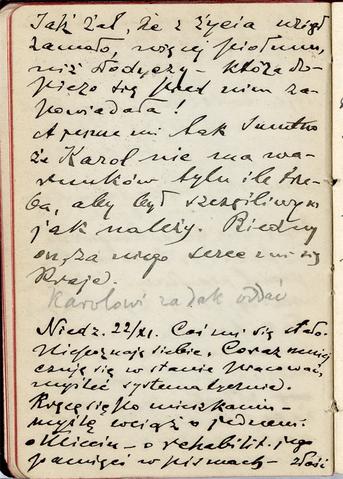 Jakż żal, że z życia wziął
zamało, więcej piołunu,
niż słodyczy – która do-
piero się przed nim za-
powiadała!
A pewne mi tak smutno
że Karol nie ma wa-
runków tylu ile trze-
ba, aby być szczęśliwym
jak należy. Biedny
on, za niego serce mi się
kraje.
Karolowi zadak oddać
Niedz. 22/XI. Coś mi się stało.
Niepoznaję siebie. Coraz mniej
czuję się w stanie pracować,
myśleć systematycznie.
Kręcę się po mieszkaniu –
myślę wciąż o jednem:
o Mieciu – o rehabilit. jego
pamięci w pismach – złość